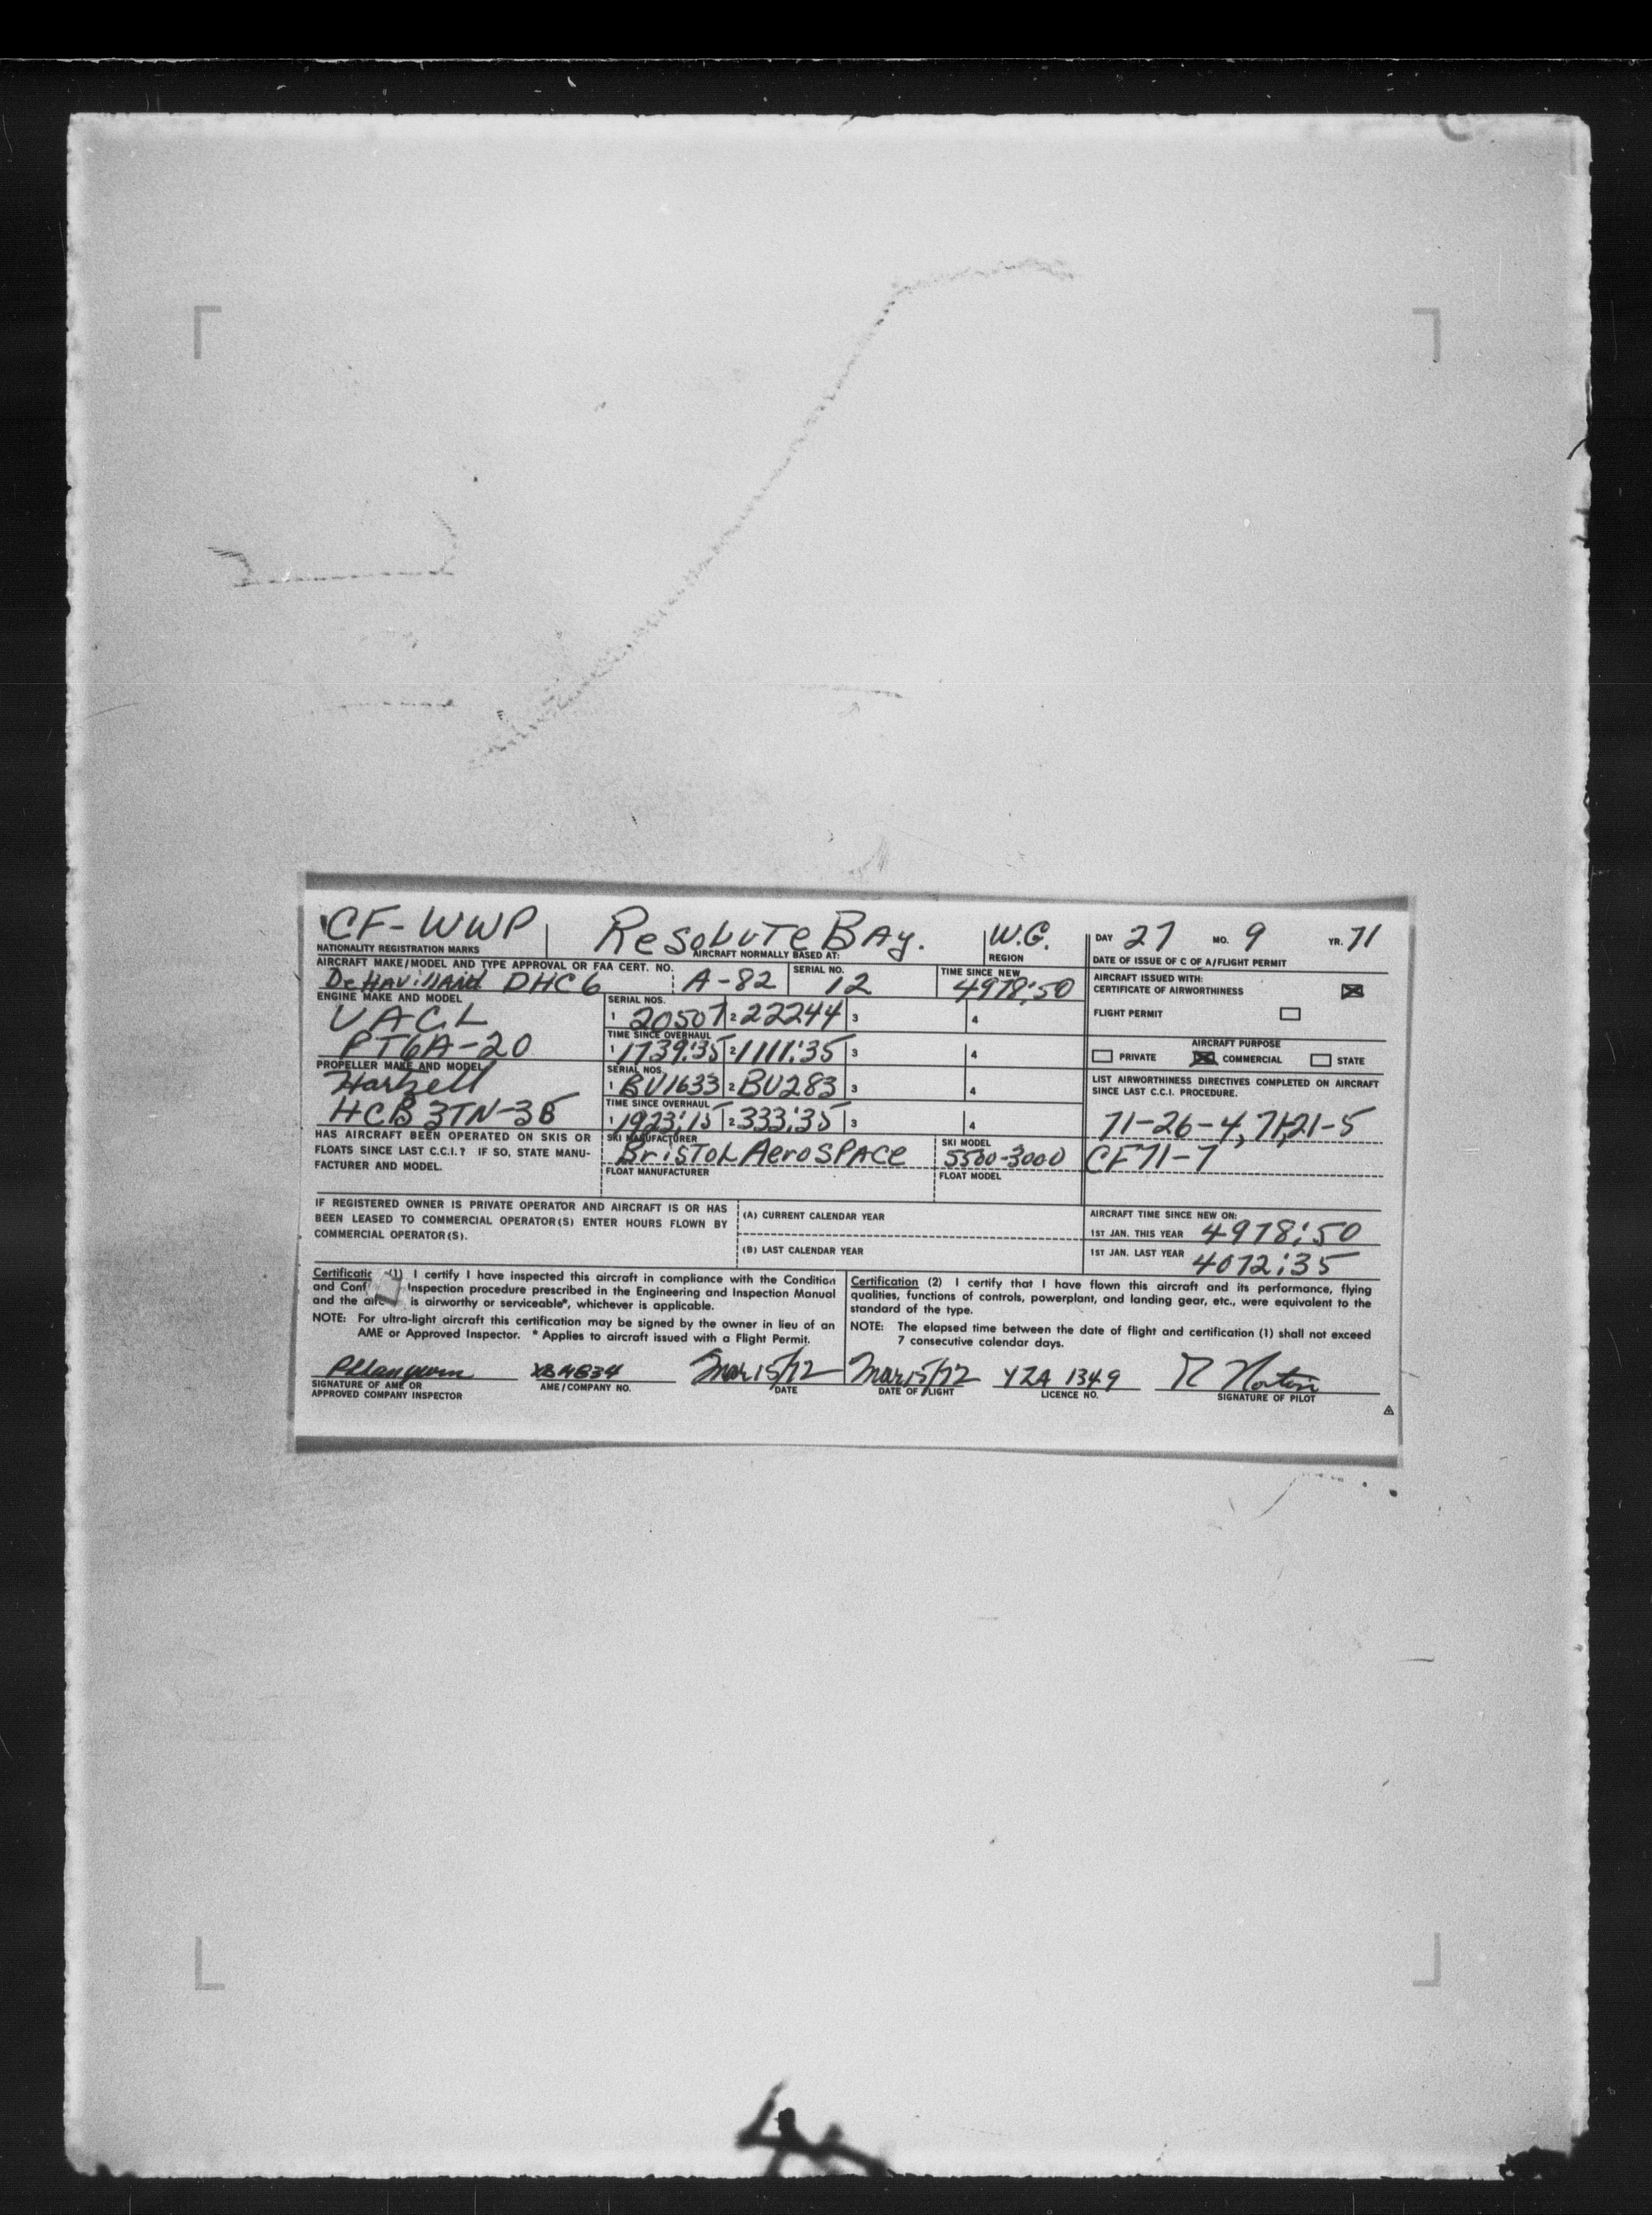 CF-WWP ResoluTe BAy. W.G. DAY 27 MO. 9 YR. 71
NATIONALITY REGISTRATION MARKS AIRCRAFT NORMALLY BASED AT: REGION DATE OF ISSUE OF C OF A/FLIGHT PERMIT
AIRCRAFT MAKE/MODEL AND TYPE APPROVAL OR FAA CERT. NO. SERIAL NO. TIME SINCE NEW
DeHavilland DHC6 A-82 12 4978:50
AIRCRAFT ISSUED WITH:
CERTIFICATE OF AIRWORTHINESS
FLIGHT PERMIT
ENGINE MAKE AND MODEL SERIAL NOS.
UACL 1 20507 2 22244 3 4
TIME SINCE OVERHAUL
PT6A-20 1 1739:35 2 1111:35 3 4
AIRCRAFT PURPOSE
PRIVATE COMMERCIAL STATE
PROPELLER MAKE AND MODEL SERIAL NOS.
Hartzell 1 BU1633 2 BU283 3 4
TIME SINCE OVERHAUL
HCB3TN-3B 1 1923:15 2 333:35 3 4
LIST AIRWORTHINESS DIRECTIVES COMPLETED ON AIRCRAFT
SINCE LAST C.C.I. PROCEDURE.
71-26-4, 71-21-5
CF71-7
HAS AIRCRAFT BEEN OPERATED ON SKIS OR
FLOATS SINCE LAST C.C.I.? IF SO, STATE MANU-
FACTURER AND MODEL.
SKI MANUFACTURER SKI MODEL
BrisToL AeroSPAce 5500-3000
FLOAT MANUFACTURER FLOAT MODEL
IF REGISTERED OWNER IS PRIVATE OPERATOR AND AIRCRAFT IS OR HAS
BEEN LEASED TO COMMERCIAL OPERATOR(S) ENTER HOURS FLOWN BY
COMMERCIAL OPERATOR(S).
(A) CURRENT CALENDAR YEAR
(B) LAST CALENDAR YEAR
AIRCRAFT TIME SINCE NEW ON:
1ST JAN. THIS YEAR 4978:50
1ST JAN. LAST YEAR 4072:35
Certificatic (1) I certify I have inspected this aircraft in compliance with the Condition
and Conf Inspection procedure prescribed in the Engineering and Inspection Manual
and the airc is airworthy or serviceable*, whichever is applicable.
NOTE: For ultra-light aircraft this certification may be signed by the owner in lieu of an
AME or Approved Inspector. * Applies to aircraft issued with a Flight Permit.
Certification (2) I certify that I have flown this aircraft and its performance, flying
qualities, functions of controls, powerplant, and landing gear, etc., were equivalent to the
standard of the type.
NOTE: The elapsed time between the date of flight and certification (1) shall not exceed
7 consecutive calendar days.
Mar 15/72 Mar 15/72 YZA 1349 R Norton
SIGNATURE OF AME OR
APPROVED COMPANY INSPECTOR
AME/COMPANY NO. DATE DATE OF FLIGHT LICENCE NO. SIGNATURE OF PILOT